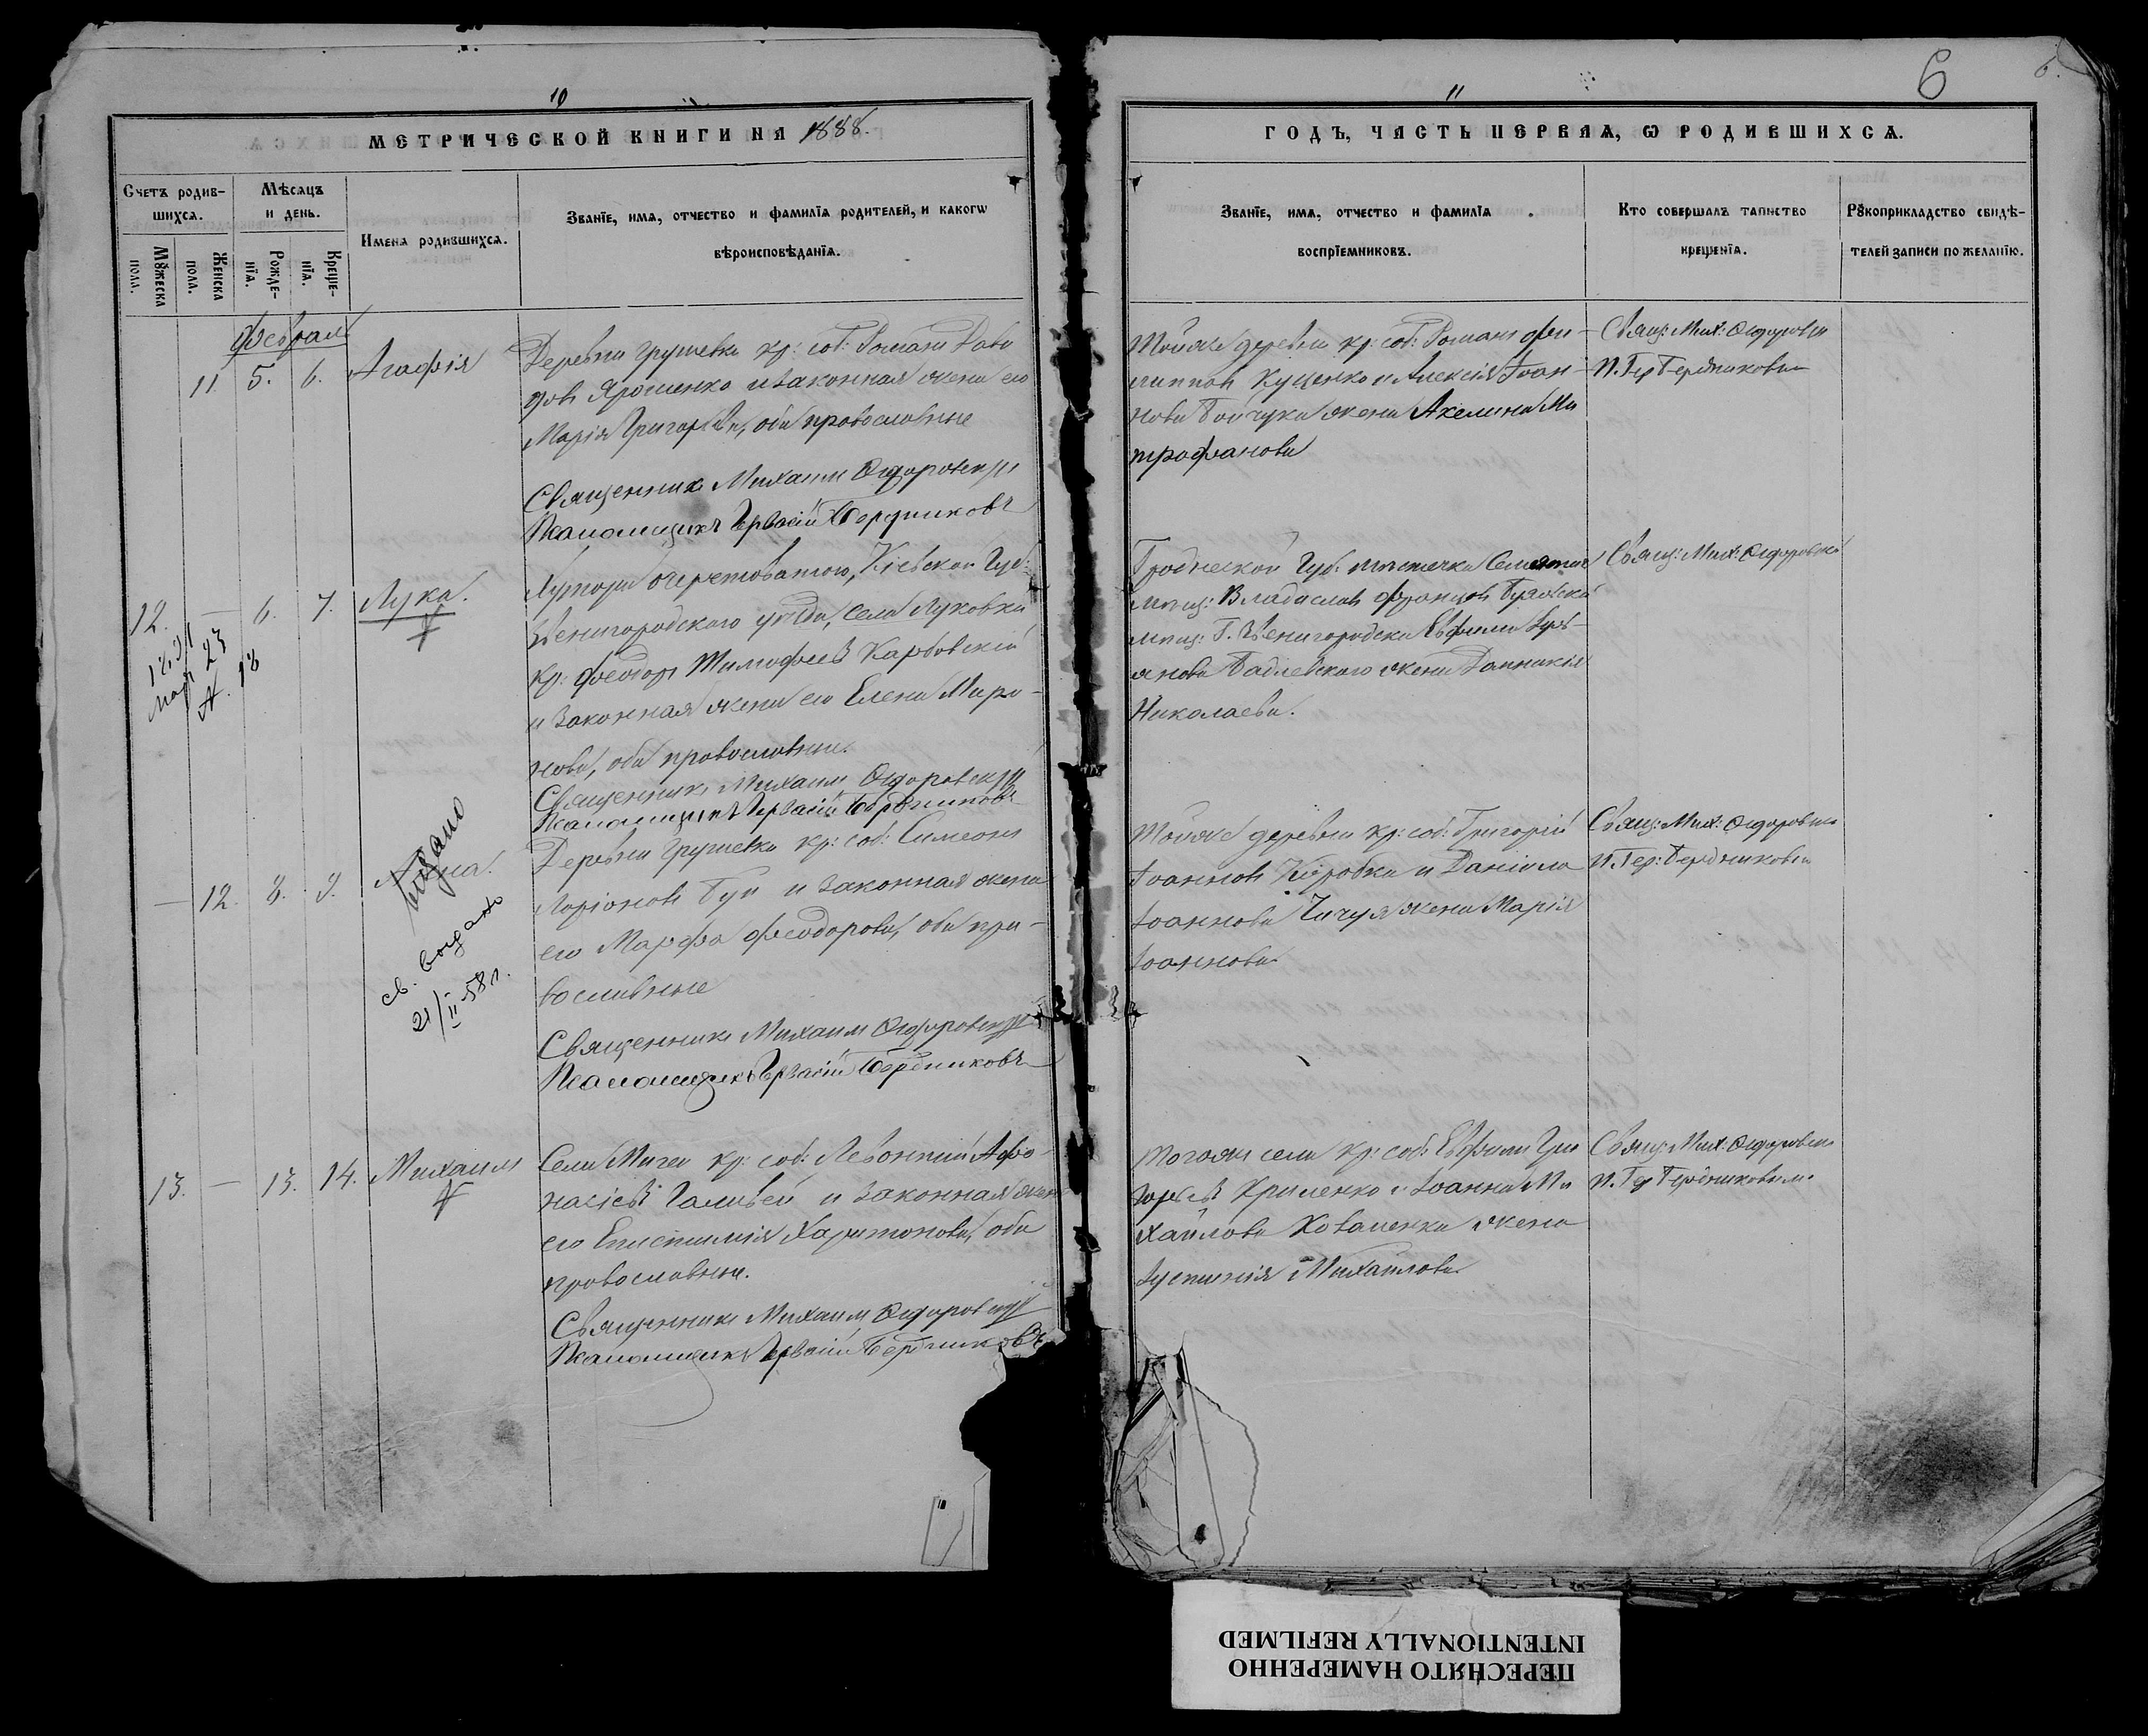 10
МЕТРИЧЕСКОЙ КНИГИ НА 1888.
Счетъ родив-
шихся.
Мѣсяцъ
и день.
Имена родившихся.
Званїе, имя, отчество и фамилїя родителей, и какогѡ
вѣроисповѣданїя.
Мꙋжеска
пола.
Женска
пола.
Рожде-
нїя.
Креще-
нїя.
Февраль
11. 5. 6. Агафія
Деревни Грушевки кр: соб: Романъ Дави
довъ Ярошенко и законная жена его
Марія Григорьева, оба православные
Священникъ Михаилъ Сидоровскій
Псаломщикъ Гервасій Бердниковъ
12. — 6. 7. Лука.
Хутора Очеретоватого, Кіевской Губ:
Звенигородского уѣзда, села Луковки
кр: Феодоръ Тимофеевъ Карбовскій
и законная жена его Елена Миро-
нова, оба православные.
Священникъ Михаилъ Сидоровскій
Псаломщикъ Гервасій Бердниковъ
— 12. 8. 9. Анна.
выдано
св. выдано
21/II-58 г.
Деревни Грушевки кр: соб: Симеонъ
Ларіоновъ Буц и законная жена
его Марфа Феодорова, оба пра-
вославные
Священникъ Михаилъ Сидоровскій
Псаломщикъ Гервасій Бердниковъ
13. — 13. 14. Михаилъ
Села Мигеи кр: соб: Левонтій Афа-
насіевъ Галивей и законная жена
его Епистимія Харитонова, оба
православные.
Священникъ Михаилъ Сидоровскій
Псаломщикъ Гервасій Бердниковъ
11
6
6.
ГОДЪ, ЧАСТЬ ПЕРВАЯ, Ѡ РОДИВШИХСЯ.
Званїе, имя, отчество и фамилїя
воспрїемниковъ.
Кто совершалъ таинство
крещенїя.
Рꙋкоприкладство свидѣ-
телей записи по желанїю.
Тойже деревни кр: соб: Романъ Фи-
липповъ Куценко и Алексія Іоан-
нова Бойчука жена Акелина Ми
трофанова
Свящ: Мих: Сидоровск
П. Гер Бердниковым
Гродненской Губ. местечка
мещ: Владиславъ Францовъ
мещ: Г. Звенигородки Евфимія
жена Домникія
Николаева.
Свящ: Мих: Сидоровскій
Тойже деревни кр: соб: Григорій
Іоанновъ Коробка и Даніила
Іоаннова Чичуя жена Марія
Іоаннова
Свящ: Мих: Сидоровск
П. Гер: Бердниковым
Тогоже села кр: соб: Евфимъ Гри
горьевъ Криленко и Іоанна Ми
хайлова Коваленка жена
Іустинія Михайлова
Свящ: Мих: Сидоровск
П. Гер Бердниковым.
ПЕРЕСНЯТО НАМЕРЕННО
INTENTIONALLY REFILMED